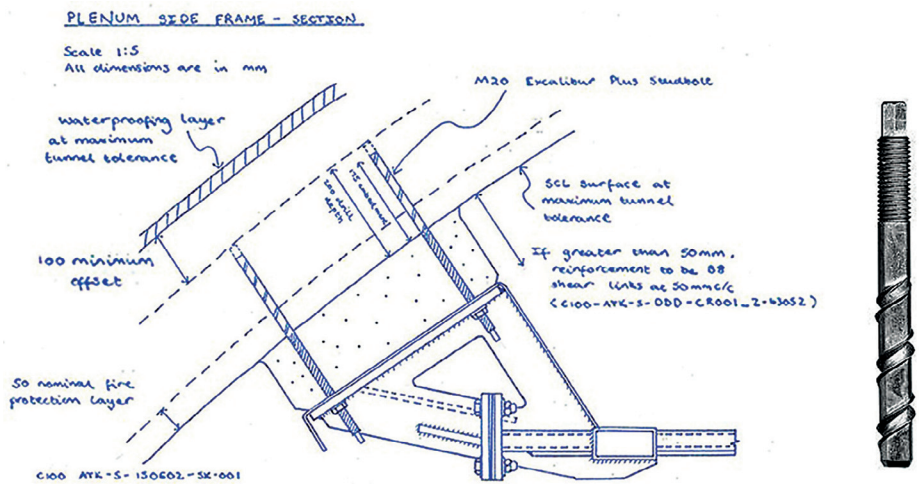 PLENUM SIDE FRAME - SECTION
Scale 1:5
All dimensions are in mm
M20 Excalibur Plus Studbolt
Waterproofing layer
at maximum
tunnel tolerance
200 drill
depth
175 embedment
SCL surface at
maximum tunnel
tolerance
100 minimum
offset
If greater than 50mm,
reinforcement to be B8
shear links at 50mm c/c
(C100-ATK-S-DDD-CR001_Z-63052)
50 nominal fire
protection layer
C100 ATK-S-150602-SK-001